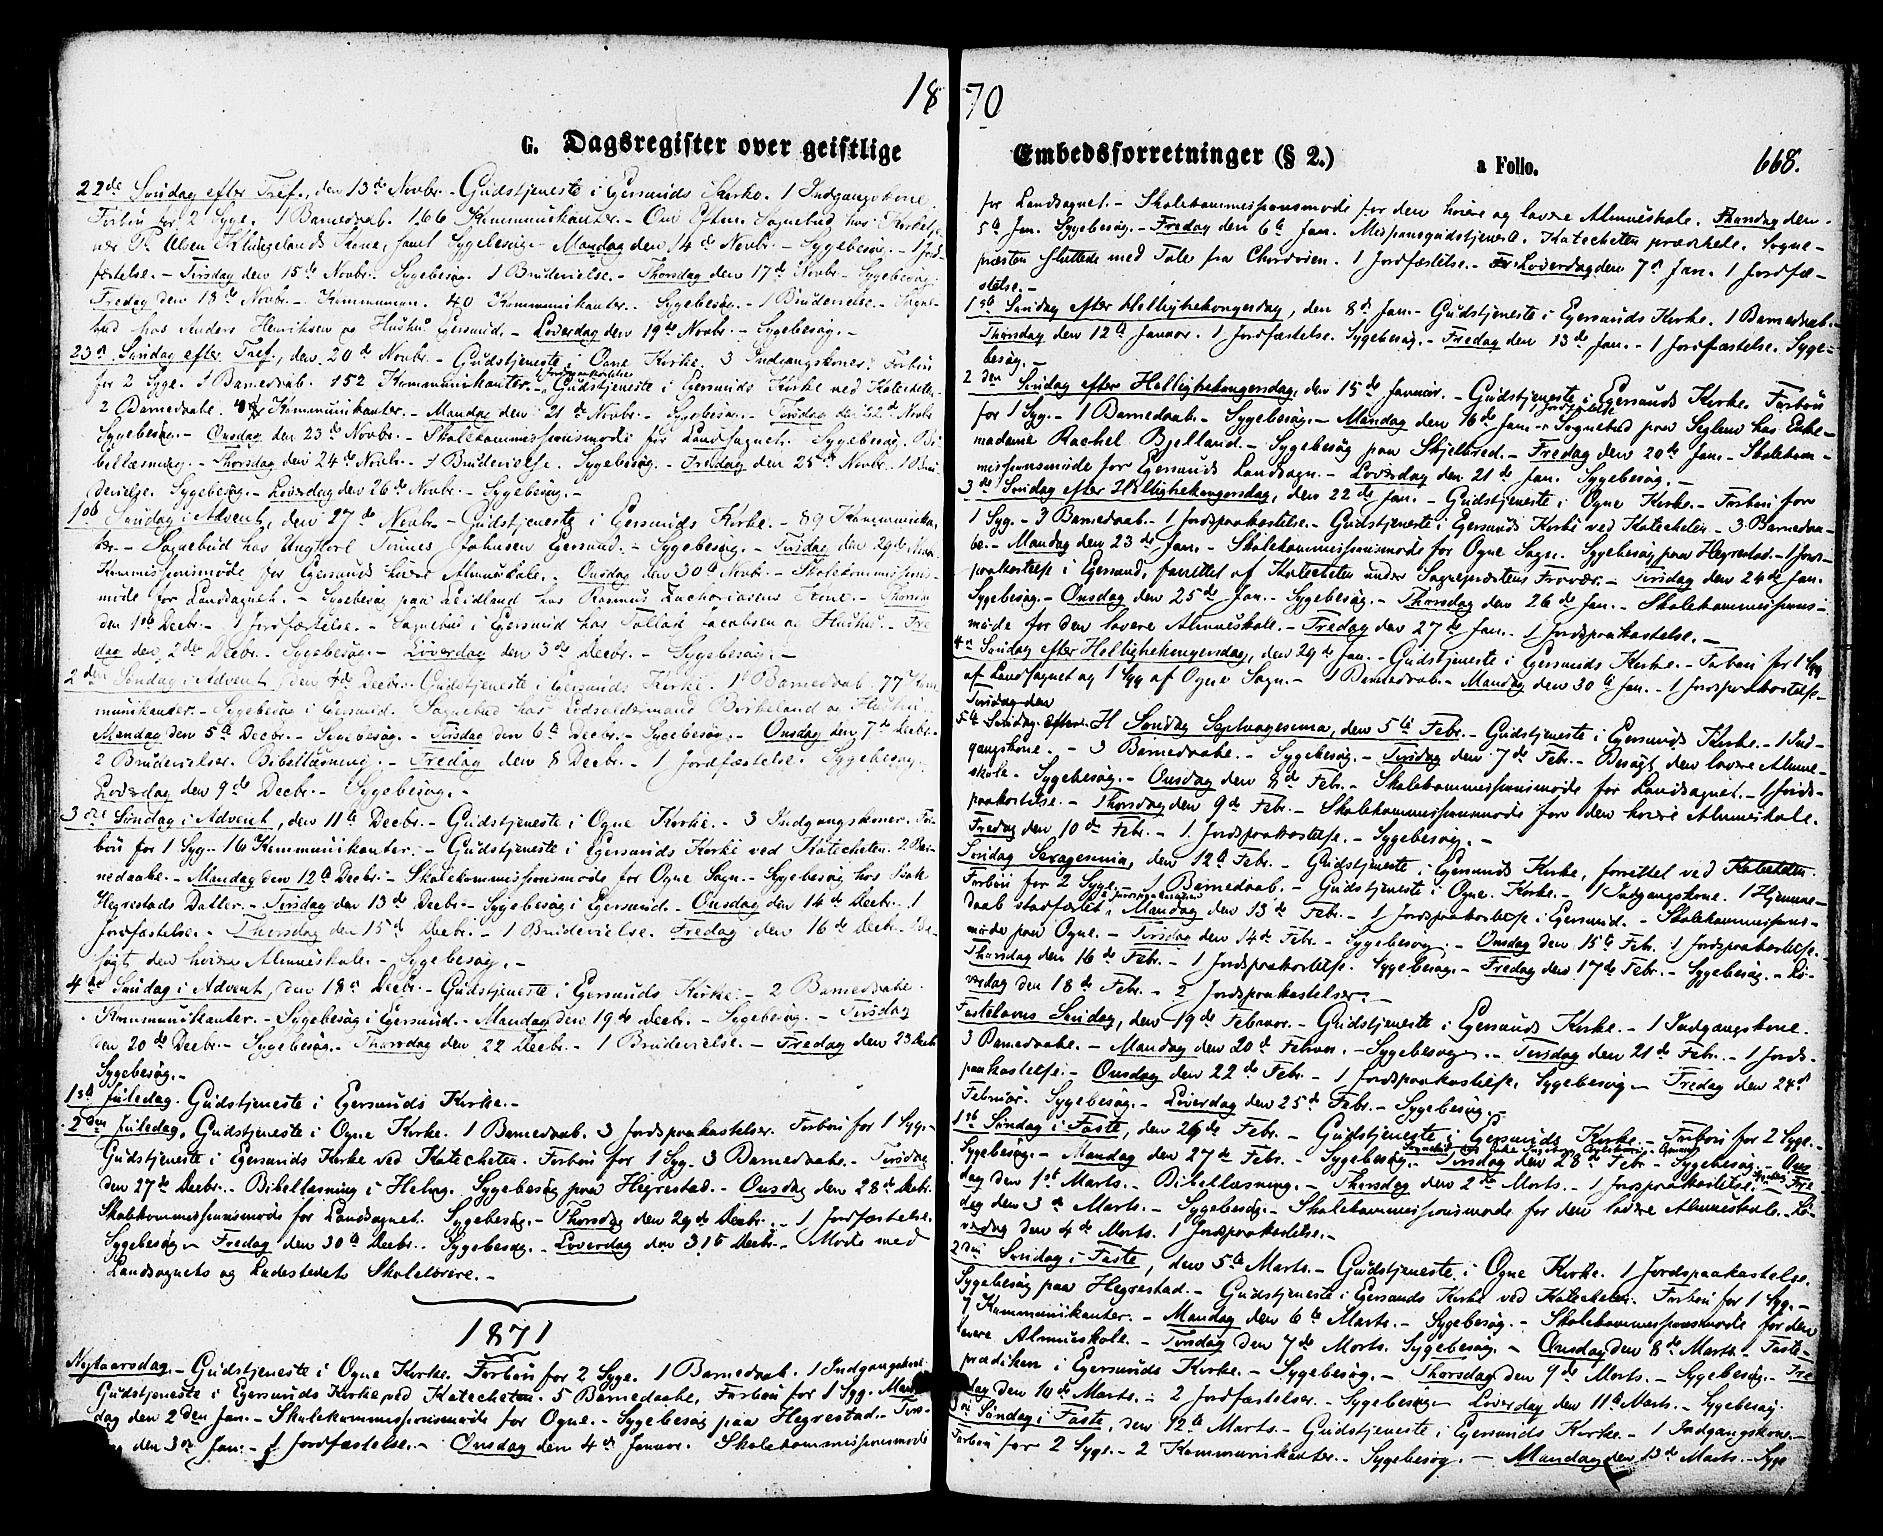 1870
G. Dagsregister over geistlige Embedsforretninger (§ 2.)
a Folio.
668.
22de Søndag efter Tref., den 13de Novbr. - Gudstjeneste i Egersunds Kirke. 1 Indgangskone.
Forbøn for 2 Syge. 1 Barnedaab. 166 Kommunikanter. - Om Eftm. Sognebud hos
Sygebesøg. - Mandag den 14de Novbr. - Sygebesøg. - 1 Jord-
fæstelse. - Tirsdag den 15de Novbr. Sygebesøg. 1 Brudevielse. - Thorsdag den 17de Novbr. - Sygebesøg.
Fredag den 18de Novbr. - Kommunion. 40 Kommunikanter. - Sygebesøg. - 1 Brudevielse. - Sogne-
bud hos Anders Henriksen og Hustru Egersund. - Løverdag den 19de Novbr. - Sygebesøg. -
23de Søndag efter Tref., den 20de Novbr. - Gudstjeneste i Ogne Kirke. 3 Indgangskoner. Forbøn
for 2 Syge. 1 Barnedaab. 152 Kommunikanter. - Gudstjeneste i Egersunds Kirke ved Katecheten.
2 Barnedaabe. Kommunikanter. - Mandag den 21de Novbr. - Sygebesøg. - Tirsdag den 22de Novbr.
Sygebesøg. - Onsdag den 23de Novbr. - Skolekommissionsmøde for Landsognet. - Sygebesøg. Bi-
bellæsning. - Thorsdag den 24de Novbr. - 1 Brudevielse. Sygebesøg. - Fredag den 25de Novbr. 1 Bru-
devielse. Sygebesøg. - Løverdag den 26de Novbr. - Sygebesøg. -
1ste Søndag i Advent, den 27de Novbr. - Gudstjeneste i Egersunds Kirke. - 89 Kommunikan-
ter. - Sognebud hos Ungkarl Tønnes Egersund. - Sygebesøg. - Tirsdag den 29de Novbr.
Kommissionsmøde for Egersunds høiere Almueskole. - Onsdag den 30te Novbr. - Skolekommissions-
møde for Landsognet. - Sygebesøg paa Leidland hos Rasmus Zachariasens Kone. - Thorsdag
den 1ste Decbr. - 1 Jordfæstelse. - Sognebud i Egersund hos Tollak Jacobsen og Hustru. - Fre-
dag den 2den Decbr. - Sygebesøg. - Løverdag den 3de Decbr. - Sygebesøg. -
2den Søndag i Advent, den 4de Decbr. - Gudstjeneste i Egersunds Kirke. 1 Barnedaab. 77 Kom-
munikanter. - Sygebesøg i Egersund. Sognebud hos Birkeland og Hustru.
Mandag den 5te Decbr. - Sygebesøg. - Tirsdag den 6te Decbr. - Sygebesøg. - Onsdag den 7de Decbr.
2 Brudevielser. Bibellæsning. - Fredag den 8 Decbr. - 1 Jordfæstelse. Sygebesøg.
Løverdag den 9de Decbr. - Sygebesøg. -
3die Søndag i Advent, den 11te Decbr. - Gudstjeneste i Ogne Kirke. - 3 Indgangskoner. For-
bøn for 1 Syg. 16 Kommunikanter. - Gudstjeneste i Egersunds Kirke ved Katecheten. 2 Bar-
nedaabe. - Mandag den 12te Decbr. - Skolekommissionsmøde for Ogne Sogn. - Sygebesøg hos Isak
Hegrestads Datter. - Tirsdag den 13de Decbr. - Sygebesøg i Egersund. - Onsdag den 14de Decbr. 1
Jordfæstelse. - Thorsdag den 15de Decbr. - 1 Brudevielse. Fredag den 16de Decbr. Be-
søgt den høiere Almueskole. - Sygebesøg. -
4de Søndag i Advent, den 18de Decbr. - Gudstjeneste i Egersunds Kirke. - 2 Barnedaabe.
Kommunikanter. - Sygebesøg i Egersund. - Mandag den 19de Decbr. - Sygebesøg. - Tirsdag
den 20de Decbr. - Sygebesøg. - Thorsdag den 22 Decbr. - 1 Brudevielse. - Fredag den 23 Decbr.
Sygebesøg. -
1ste Juledag. Gudstjeneste i Egersunds Kirke. -
2den Juledag. Gudstjeneste i Ogne Kirke. 1 Barnedaab. 3 Jordspaakastelser. Forbøn for 1 Syg. -
Gudstjeneste i Egersunds Kirke ved Katecheten. Forbøn for 1 Syg. 3 Barnedaabe. - Tirsdag
den 27de Decbr. - Bibellæsning i Helvig. Sygebesøg paa Hegrestad. - Onsdag den 28de Decbr.
Skolekommissionsmøde for Landsognet. Sygebesøg. - Thorsdag den 29de Decbr. - 1 Jordfæstelse.
Sygebesøg. - Fredag den 30te Decbr. Sygebesøg. - Løverdag den 31te Decbr. - Møde med
Landsognets og Ladestedets Skolelærere. -
1871
Nytaarsdag. - Gudstjeneste i Ogne Kirke. Forbøn for 2 Syge. 1 Barnedaab. 1 Indgangskone.
Gudstjeneste i Egersunds Kirke ved Katecheten. 5 Barnedaabe. Forbøn for 1 Syg. Man-
dag den 2den Jan. - Skolekommissionsmøde for Ogne. - Sygebesøg paa Hegrestad. - Tirs-
dag den 3die Jan. - 1 Jordfæstelse. - Onsdag den 4de Januar. Skolekommissionsmøde
for Landsognet. - Skolekommissionsmøde for den høiere og lavere Almueskole. Thorsdag den
5te Jan. Sygebesøg. - Fredag den 6te Jan. Missionsgudstjeneste. Katecheten prækede. Sogne-
præsten sluttede med Tale fra Chordøren. 1 Jordfæstelse. - Løverdag den 7de Jan. 1 Jordfæ-
stelse. -
1ste Søndag efter Hellighekongersdag, den 8de Jan. - Gudstjeneste i Egersunds Kirke. 1 Barnedaab. -
Thorsdag den 12te Januar. 1 Jordfæstelse. Sygebesøg. - Fredag den 13de Jan. - 1 Jordfæstelse. Syge-
besøg. -
2den Søndag efter Hellighekongersdag, den 15de Januar. - Gudstjeneste i Egersunds Kirke. Forbøn
for 1 Syg. - 1 Barnedaab. - Sygebesøg. - Mandag den 16de Jan. - 1 Jordfæstelse Sognebud paa Seglem hos Enke-
madame Rachel Bjelland. - Sygebesøg paa Skjelbred. - Fredag den 20de Jan. - Skolekom-
missionsmøde for Egersunds Landsogn. - Løverdag den 21de Jan. Sygebesøg. -
3die Søndag efter Hellighekongersdag, den 22de Jan. - Gudstjeneste i Ogne Kirke. - Forbøn for
1 Syg. - 3 Barnedaab. - 1 Jordspaakastelse. - Gudstjeneste i Egersunds Kirke ved Katecheten. - 3 Barnedaa-
be. - Mandag den 23de Jan. - Skolekommissionsmøde for Ogne Sogn. Sygebesøg paa Hegrestad. - 1 Jords-
paakastelse i Egersund, forrettet af Katecheten under Sognepræstens Fravær. - Tirsdag den 24de Jan.
Sygebesøg. - Onsdag den 25de Jan. - Sygebesøg. - Thorsdag den 26de Jan. - Skolekommissions-
møde for den lavere Almueskole. - Fredag den 27de Jan. - 1 Jordspaakastelse. -
4de Søndag efter Hellighekongersdag, den 29de Jan. - Gudstjeneste i Egersunds Kirke. - Forbøn for 1 Syg
af Landsognet og 1 Syg af Ogne Sogn. - 1 Barnedaab. - Mandag den 30te Jan. - 1 Jordspaakastelse. -
Tirsdag den
5te Søndag efter H Søndag Septuagesima, den 5te Febr. - Gudstjeneste i Egersunds Kirke. - 1 Ind-
gangskone. - 3 Barnedaabe. - Sygebesøg. - Tirsdag den 7de Febr. - Besøgt den lavere Almue-
skole. - Sygebesøg. - Onsdag den 8de Febr. - Skolekommissionsmøde for Landsognet. - 1 Jords-
paakastelse. - Thorsdag den 9de Febr. - Skolekommissionsmøde for den høiere Almueskole.
Fredag den 10de Febr. - 1 Jordspaakastelse. - Sygebesøg. -
Søndag Sexagesima, den 12te Febr. - Gudstjeneste i Egersunds Kirke, forrettet ved Katecheten.
Forbøn for 2 Syge. 1 Barnedaab. - Gudstjeneste i Ogne Kirke. - 1 Indgangskone. 1 Hjemme-
daab stadfæstet. Mandag den 13de Febr. - 1 Jordspaakastelse i Egersund. - Skolekommissions-
møde paa Ogne. - Tirsdag den 14de Febr. - Sygebesøg. - Onsdag den 15te Febr. 1 Jordspaakastelse. -
Thorsdag den 16de Febr. - 1 Jordspaakastelse. Sygebesøg. - Fredag den 17de Febr. - Sygebesøg. - Lø-
verdag den 18de Febr. - 2 Jordspaakastelser. -
Fastelavns Søndag, den 19de Februar. - Gudstjeneste i Egersunds Kirke. - 1 Indgangskone.
3 Barnedaabe. - Mandag den 20de Februar. - Sygebesøg. - Tirsdag den 21de Febr. - 1 Jords-
paakastelse. - Onsdag den 22de Febr. - 1 Jordspaakastelse, Sygebesøg - Fredag den 24de
Februar. Sygebesøg. - Løverdag den 25de Febr. - Sygebesøg. -
1ste Søndag i Faste, den 26de Febr. - Gudstjeneste i Egersunds Kirke. - Forbøn for 2 Syge. -
Sygebesøg. - Mandag den 27de Febr. - Sygebesøg. - Tirsdag den 28de Febr. - Sygebesøg. - Ons-
dag den 1ste Marts. - Bibellæsning. - Thorsdag den 2den Marts. - 1 Jordspaakastelse. - Fre-
dag den 3de Marts. - Sygebesøg. - Skolekommissionsmøde for den lavere Almueskole. - Lø-
verdag den 4de Marts. 1 Jordspaakastelse. -
2den Søndag i Faste, den 5te Marts. - Gudstjeneste i Ogne Kirke. 1 Jordspaakastelse.
Sygebesøg paa Hegrestad. - Gudstjeneste i Egersunds Kirke ved Katecheten. Forbøn for 1 Syg. -
7 Kommunikanter. - Mandag den 6te Marts. - Sygebesøg. - Skolekommissionsmøde for den
lavere Almueskole. - Tirsdag den 7de Marts. Sygebesøg. - Onsdag den 8de Marts. Faste-
prædiken i Egersunds Kirke. - Sygebesøg. - Thorsdag den 9de Marts. - Sygebesøg. - Fre-
dag den 10de Marts. - 2 Jordfæstelser. - Sygebesøg - Løverdag den 11te Marts. - Sygebesøg.
3die Søndag i Faste, den 12te Marts. - Gudstjeneste i Egersunds Kirke. - 1 Indgangskone. -
Forbøn for 2 Syge. - 2 Kommunikanter. - Sygebesøg. - Mandag den 13de Marts. - Syge